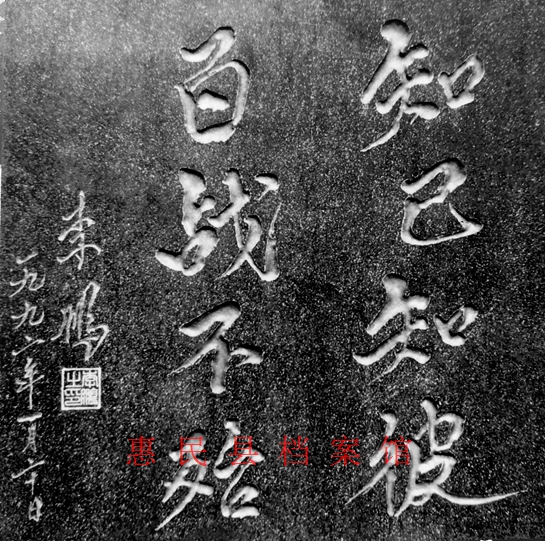 知己知彼
百战不殆
李鹏
一九九六年一月二十日
李鹏之印
惠民县档案馆